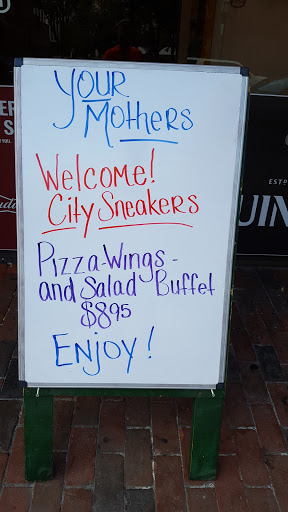 Your
Mothers
Welcome!
City Sneakers
Pizza-Wings-
and Salad Buffet
$8.95
Enjoy!
ESTD
UIN